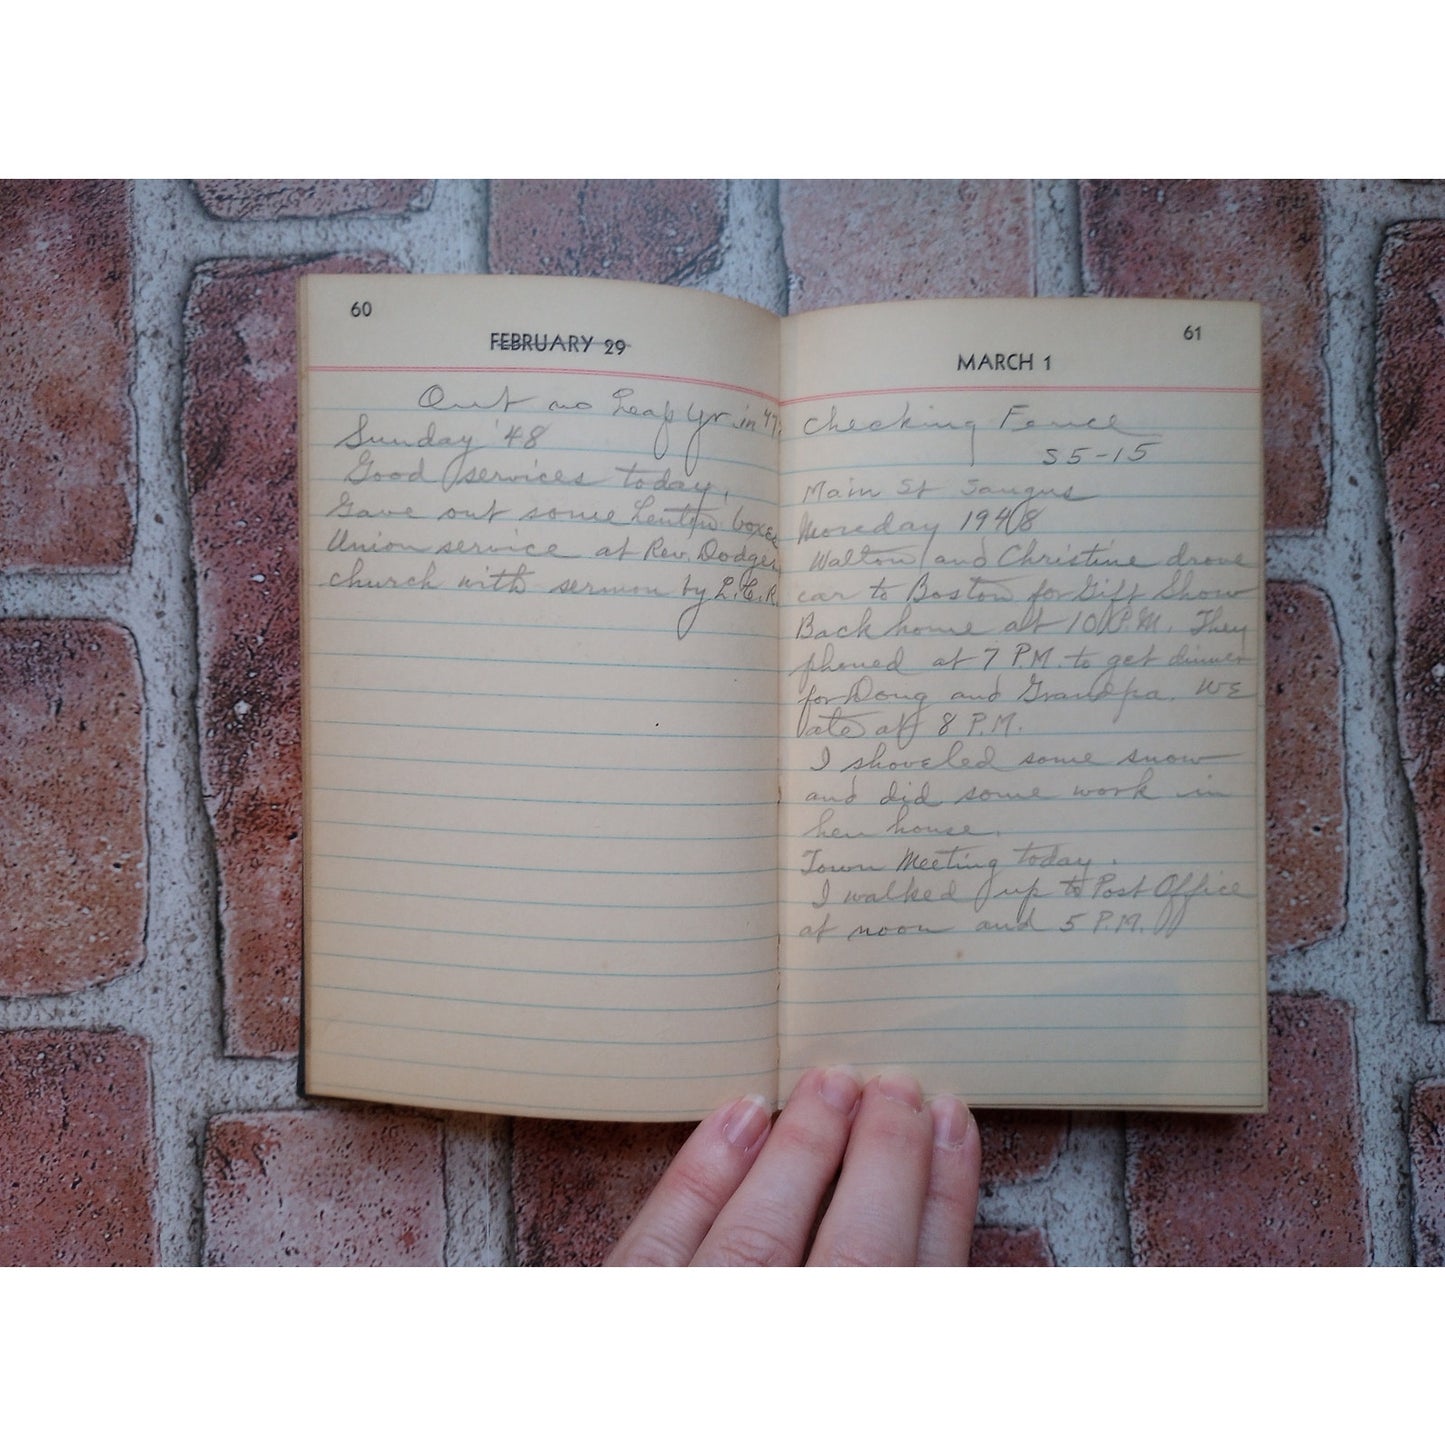 60
FEBRUARY 29
Out no Leap Yr. in '47.
Sunday '48
Good services today.
Gave out some Lenten boxes
Union service at Rev. Dodger
church with sermon by L.C.R.
61
MARCH 1
Checking Fence
S5-15
Main St Saugus
Monday 1948
Walton and Christine drove
car to Boston for Gift Show
Back home at 10 P.M. They
phoned at 7 P.M. to get dinner
for Doug and Grandpa. WE
ate at 8 P.M.
I shoveled some snow
and did some work in
hen house.
Town Meeting today.
I walked up to Post Office
at noon and 5 P.M.